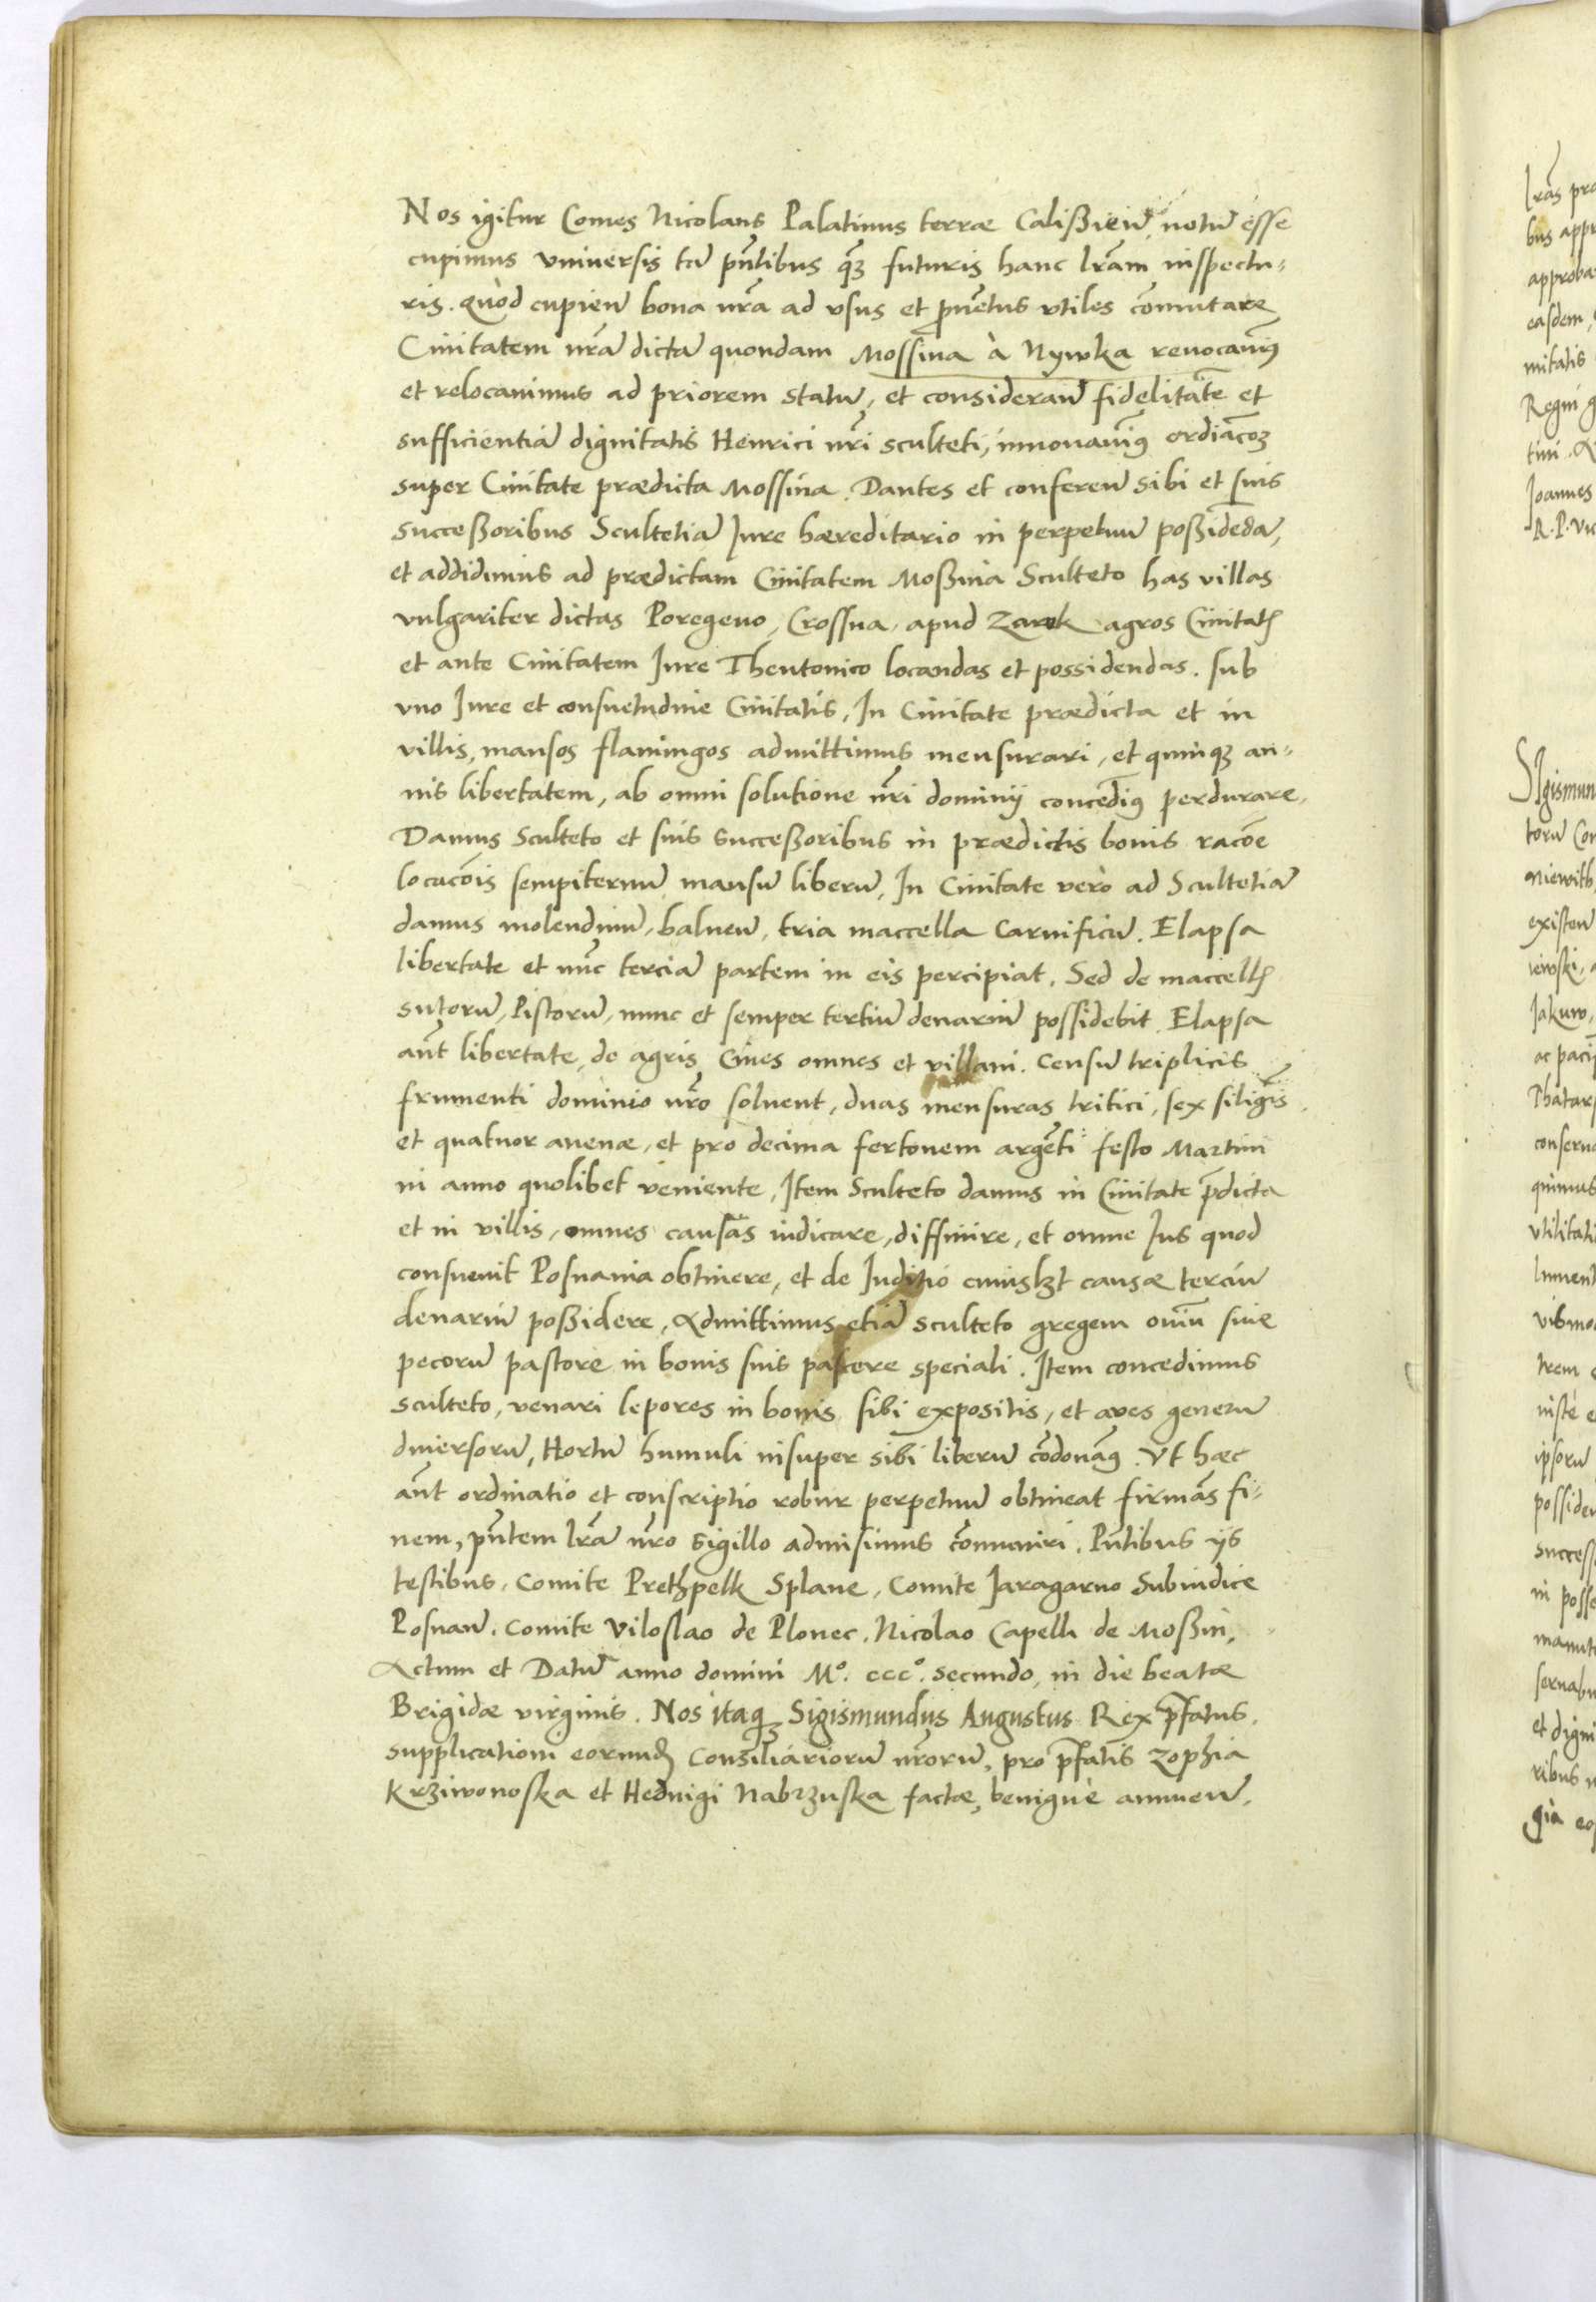 Nos igitur Comes Nicolaus Palatinus terræ Calißień, notū esse
cupimus vniuersis tā pñtibus q̃ȝ futuris hanc lr̃am inspectu-
ris. Quòd cupień bona nr̃a ad vsus et ꝓuẽtus vtiles cõmutare
Ciuitatem nr̃ā dictā quondam Mossina à Nywka reuocauim9
et relocauimus ad priorem statū, et considerań fidelitãte et
sufficientiā dignitatis Henrici nr̃i sculteti, innouauim9 ordiãcoȝ
super Ciuitate prædicta Mossina. Dantes et conferen̄ sibi et suis
succeßoribus Scultetiā Jure hæreditario in perpetuū poßidẽdā,
et addidimus ad prædictam Ciuitatem Moßina Sculteto has villas
vulgariter dictas Poregeuo, Crossua, apud Zarek agros Ciuitatꝭ
et ante Ciuitatem Jure Theutonico locandas et possidendas. sub
vno Jure et consuetudine Ciuitatis, In Ciuitate prædicta et in
villis, mansos flamingos admittimus mensurari, et quinqȝ an-
nis libertatem, ab omni solutione nr̃i dominij concedim9 perdurare.
Damus Sculteto et suis succeßoribus in prædictis bonis racõe
locacõis sempiternū mansū liberū, In Ciuitate verò ad Scultetiā
damus molendinū, balneū, tria maccella Carnificū. Elapsa
libertate et nũc terciā partem in eis percipiat. Sed de maccellꝭ
sutorū, Pistorū, nunc et semper tertiū denariū possidebit. Elapsa
aũt libertate, de agris Ciues omnes et villani. censū triplicis
frumenti dominio nr̃o soluent, duas mensuras tritici, sex siligĩs
et quatuor auenæ, et pro decima fertonem argẽti festo Martini
in anno quolibet veniente, Item Sculteto damus in Ciuitate p̃dicta
et in villis, omnes causas iudicare, diffinire, et omne Jus quod
consueuit Posnania obtinere, et de Juditio cuiuslȝt causæ terciū
denariū poßidere, Admittimus etiā sculteto gregem ouiū siue
pecorū pastore in bonis suis pascere speciali. Item concedimus
sculteto, venari lepores in bonis sibi expositis, et aves generū
diuersorū, Hortū humuli insuper sibi liberū cõdonam9. Vt hæc
aũt ordinatio et conscriptio robur perpetuū obtineat firmãs fi-
nem, pñtem lr̃ā nr̃o sigillo admisimus cõmuniri. Pñtibus ijs
testibus, Comite Prethpelk Splaue, Comite Jaragarno Subiudice
Posnań. Comite Viloslao de Plonec. Nicolao Capellꝭ de Moßin,
Actum et Datū anno domini M°. ccc°. secundo, in die beatæ
Brigidæ virginis. Nos itaqȝ Sigismundus Augustus Rex p̃fatus,
supplicationi eorundꝭ Consiliariorū nr̃orū, pro p̃fatis Zophia
Krziwonoska et Heduigi Nabrzuska factæ, benignè annuen̄.